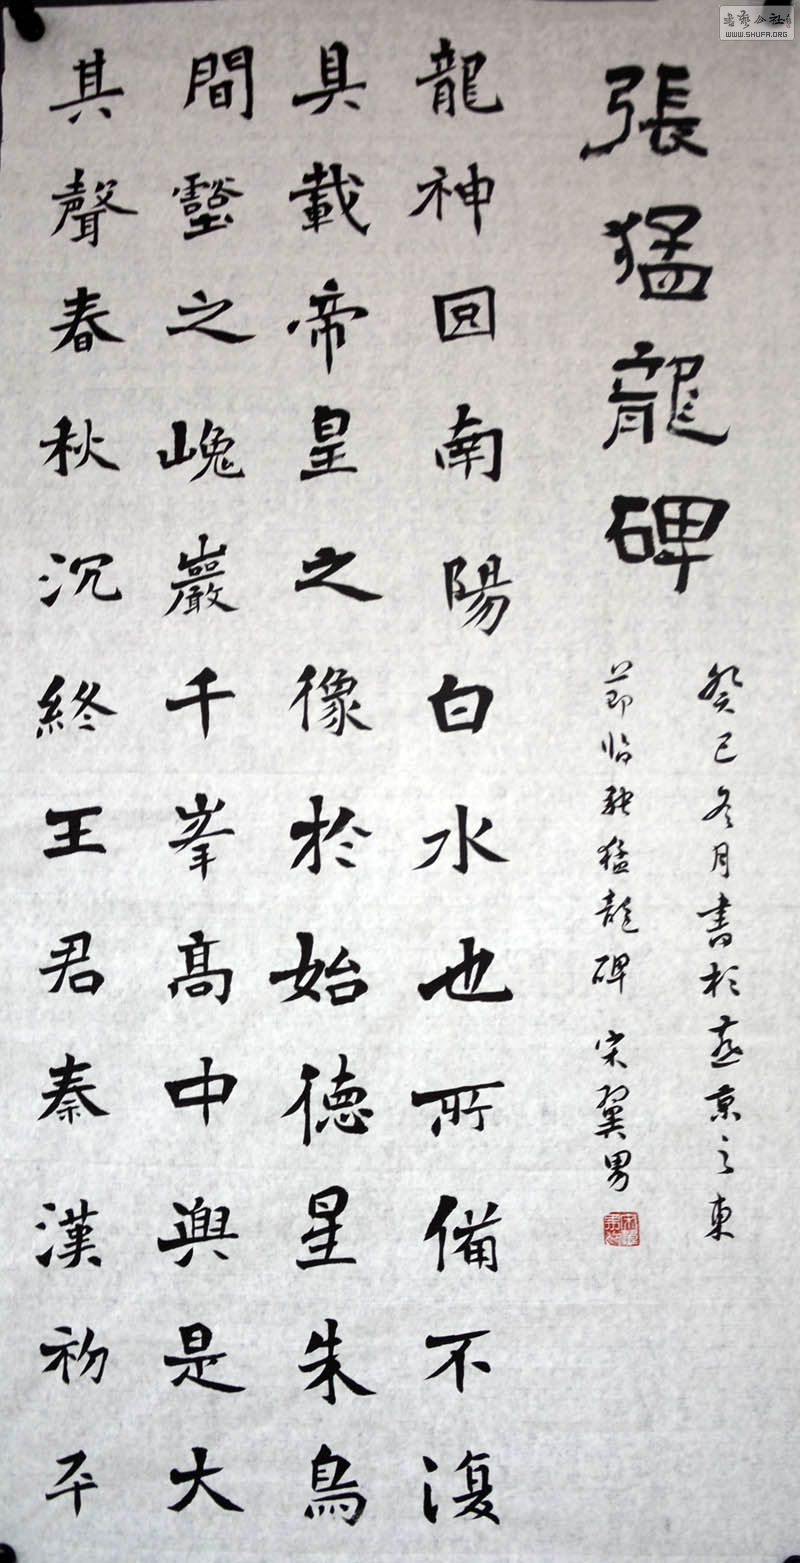 書藝公社
WWW.SHUFA.ORG
張猛龍碑
癸巳冬月書於燕京之東
節临张猛龍碑 宋翼男
龍神回南陽白水也所備不復
具載帝皇之像於始德星朱鳥
間壑之巉巖千峯高中興是大
其聲春秋沉終王君秦漢初平